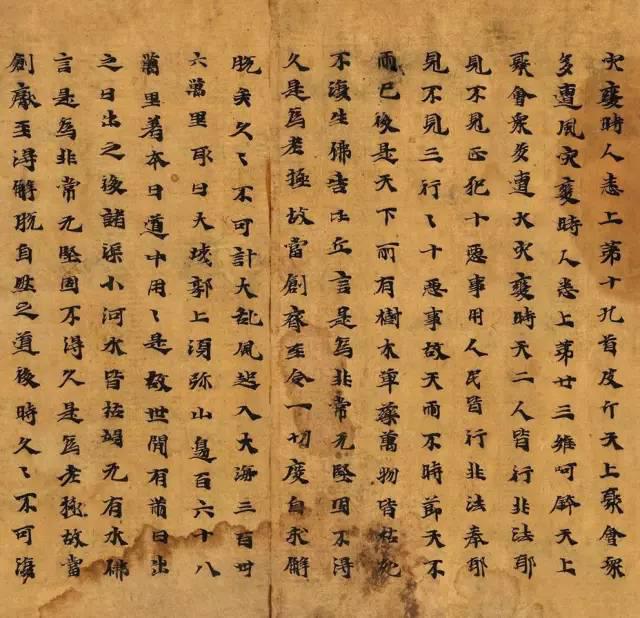 灾變時人悉上第十孔首皮斤天上聚會衆
多遭風灾變時人悉上第廿三維呵鉢天上
聚會衆多遭火灾變時天二人皆行非法耶
見不見正犯十惡事用人民皆行非法奉耶
見不見三行〻十惡事故天雨不時節天不
雨已後是天下所有樹木草藥萬物皆枯死
不復生佛告比丘言是為非常无堅固不得
久是為老極故當創齊至令一切度自求解
脫矣久〻不可計大亂風起入大海三百卅
六萬里取日天城郭上須弥山邊百六十八
萬里著本日道中用〻是故世間有兩日出
之日出之後諸渠小河水皆枯竭无有水佛
言是為非常无堅固不得久是為老極故當
創齊至得解脫自然之道後時久〻不可復